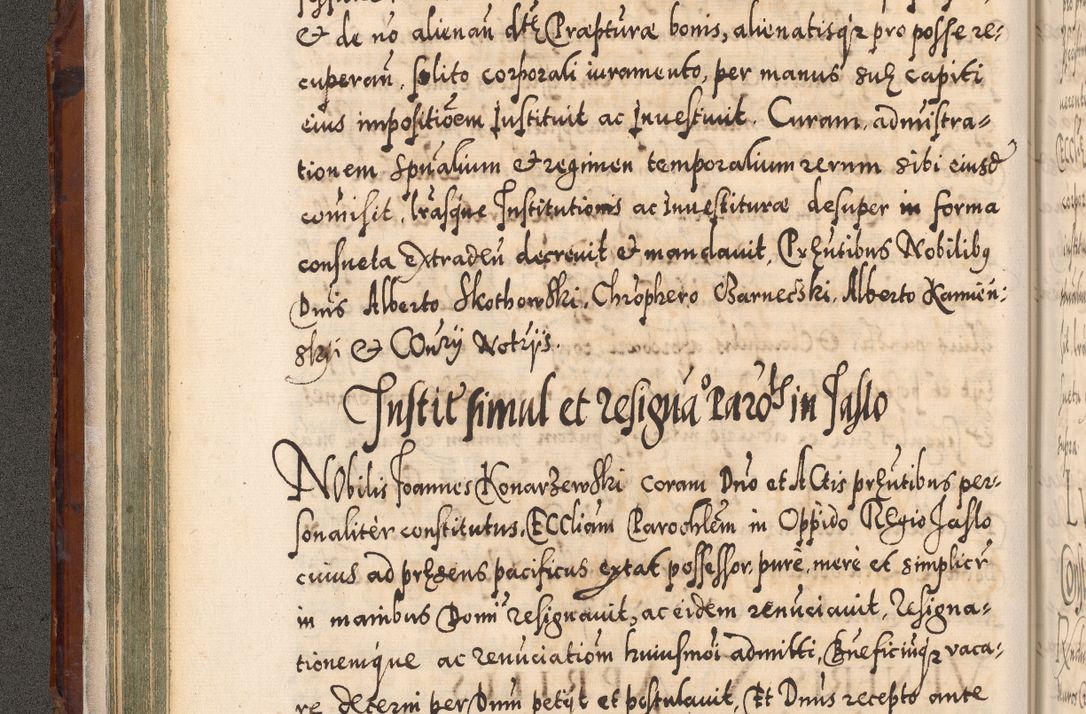 & de nō alienań dtę Præpturæ bonis, alienatisq3 pro posse re-
cuperań, solito corporali iuramento, per manus suę capiti
eius impositiõem Instituit ac Inuestiuit. Curam, admīstra-
tionem Spūalium & regimen temporalium rerum sibi eiusd
comisit, lrasque Institutionis ac Inuestituræ desuper in forma
consueta Extradeń decreuit & mandauit, Pręntibus Nobilibg
Dnis Alberto Skothowski, Chrōphero Czarnecski, Alberto Kamień-
skij & Notrijs.
Instit simul et resignao Parolis in Jaslo
NObilis Joannes Konarzewski coram Dno et Actis pręntibus per-
sonalitèr constitutus, ECCliam Parochlem in Oppido REgio Jaslo
cuius ad pręsens pacificus extat possessor, purè, merè et simplicr
in manibus Domi resignauit, ac eidem renūciauit, Resigna-
tionemque ac renūciatiom huiusmoi admitti, Būeficiūq3 vaca-
re decerni per Dnum petijt et postulauit, Et Dnus recepto ante